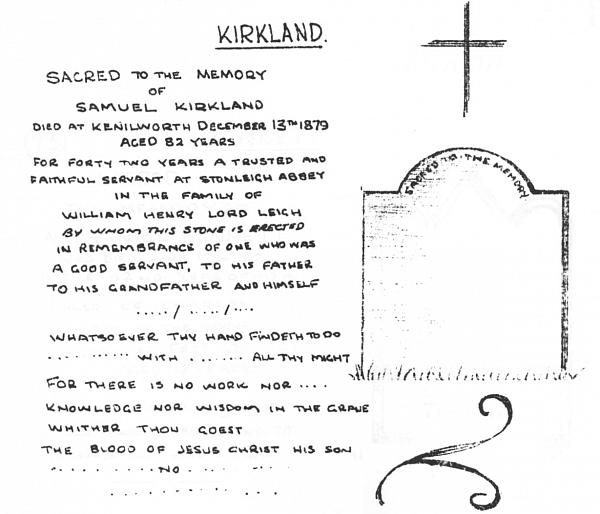 KIRKLAND.
SACRED TO THE MEMORY
OF
SAMUEL KIRKLAND
DIED AT KENILWORTH DECEMBER 13TH 1879
AGED 82 YEARS
FOR FORTY TWO YEARS A TRUSTED AND
FAITHFUL SERVANT AT STONLEIGH ABBEY
IN THE FAMILY OF
WILLIAM HENRY LORD LEIGH
BY WHOM THIS STONE IS ERECTED
IN REMEMBRANCE OF ONE WHO WAS
A GOOD SERVANT, TO HIS FATHER
TO HIS GRANDFATHER AND HIMSELF
...../...../...
WHATSOEVER THY HAND FINDETH TO DO
.... ...... WITH ....... ALL THY MIGHT
FOR THERE IS NO WORK NOR ....
KNOWLEDGE NOR WISDOM IN THE GRAVE
WHITHER THOU GOEST
THE BLOOD OF JESUS CHRIST HIS SON
.......... NO ..... ....
............ ...
SACRED · TO · THE · MEMORY